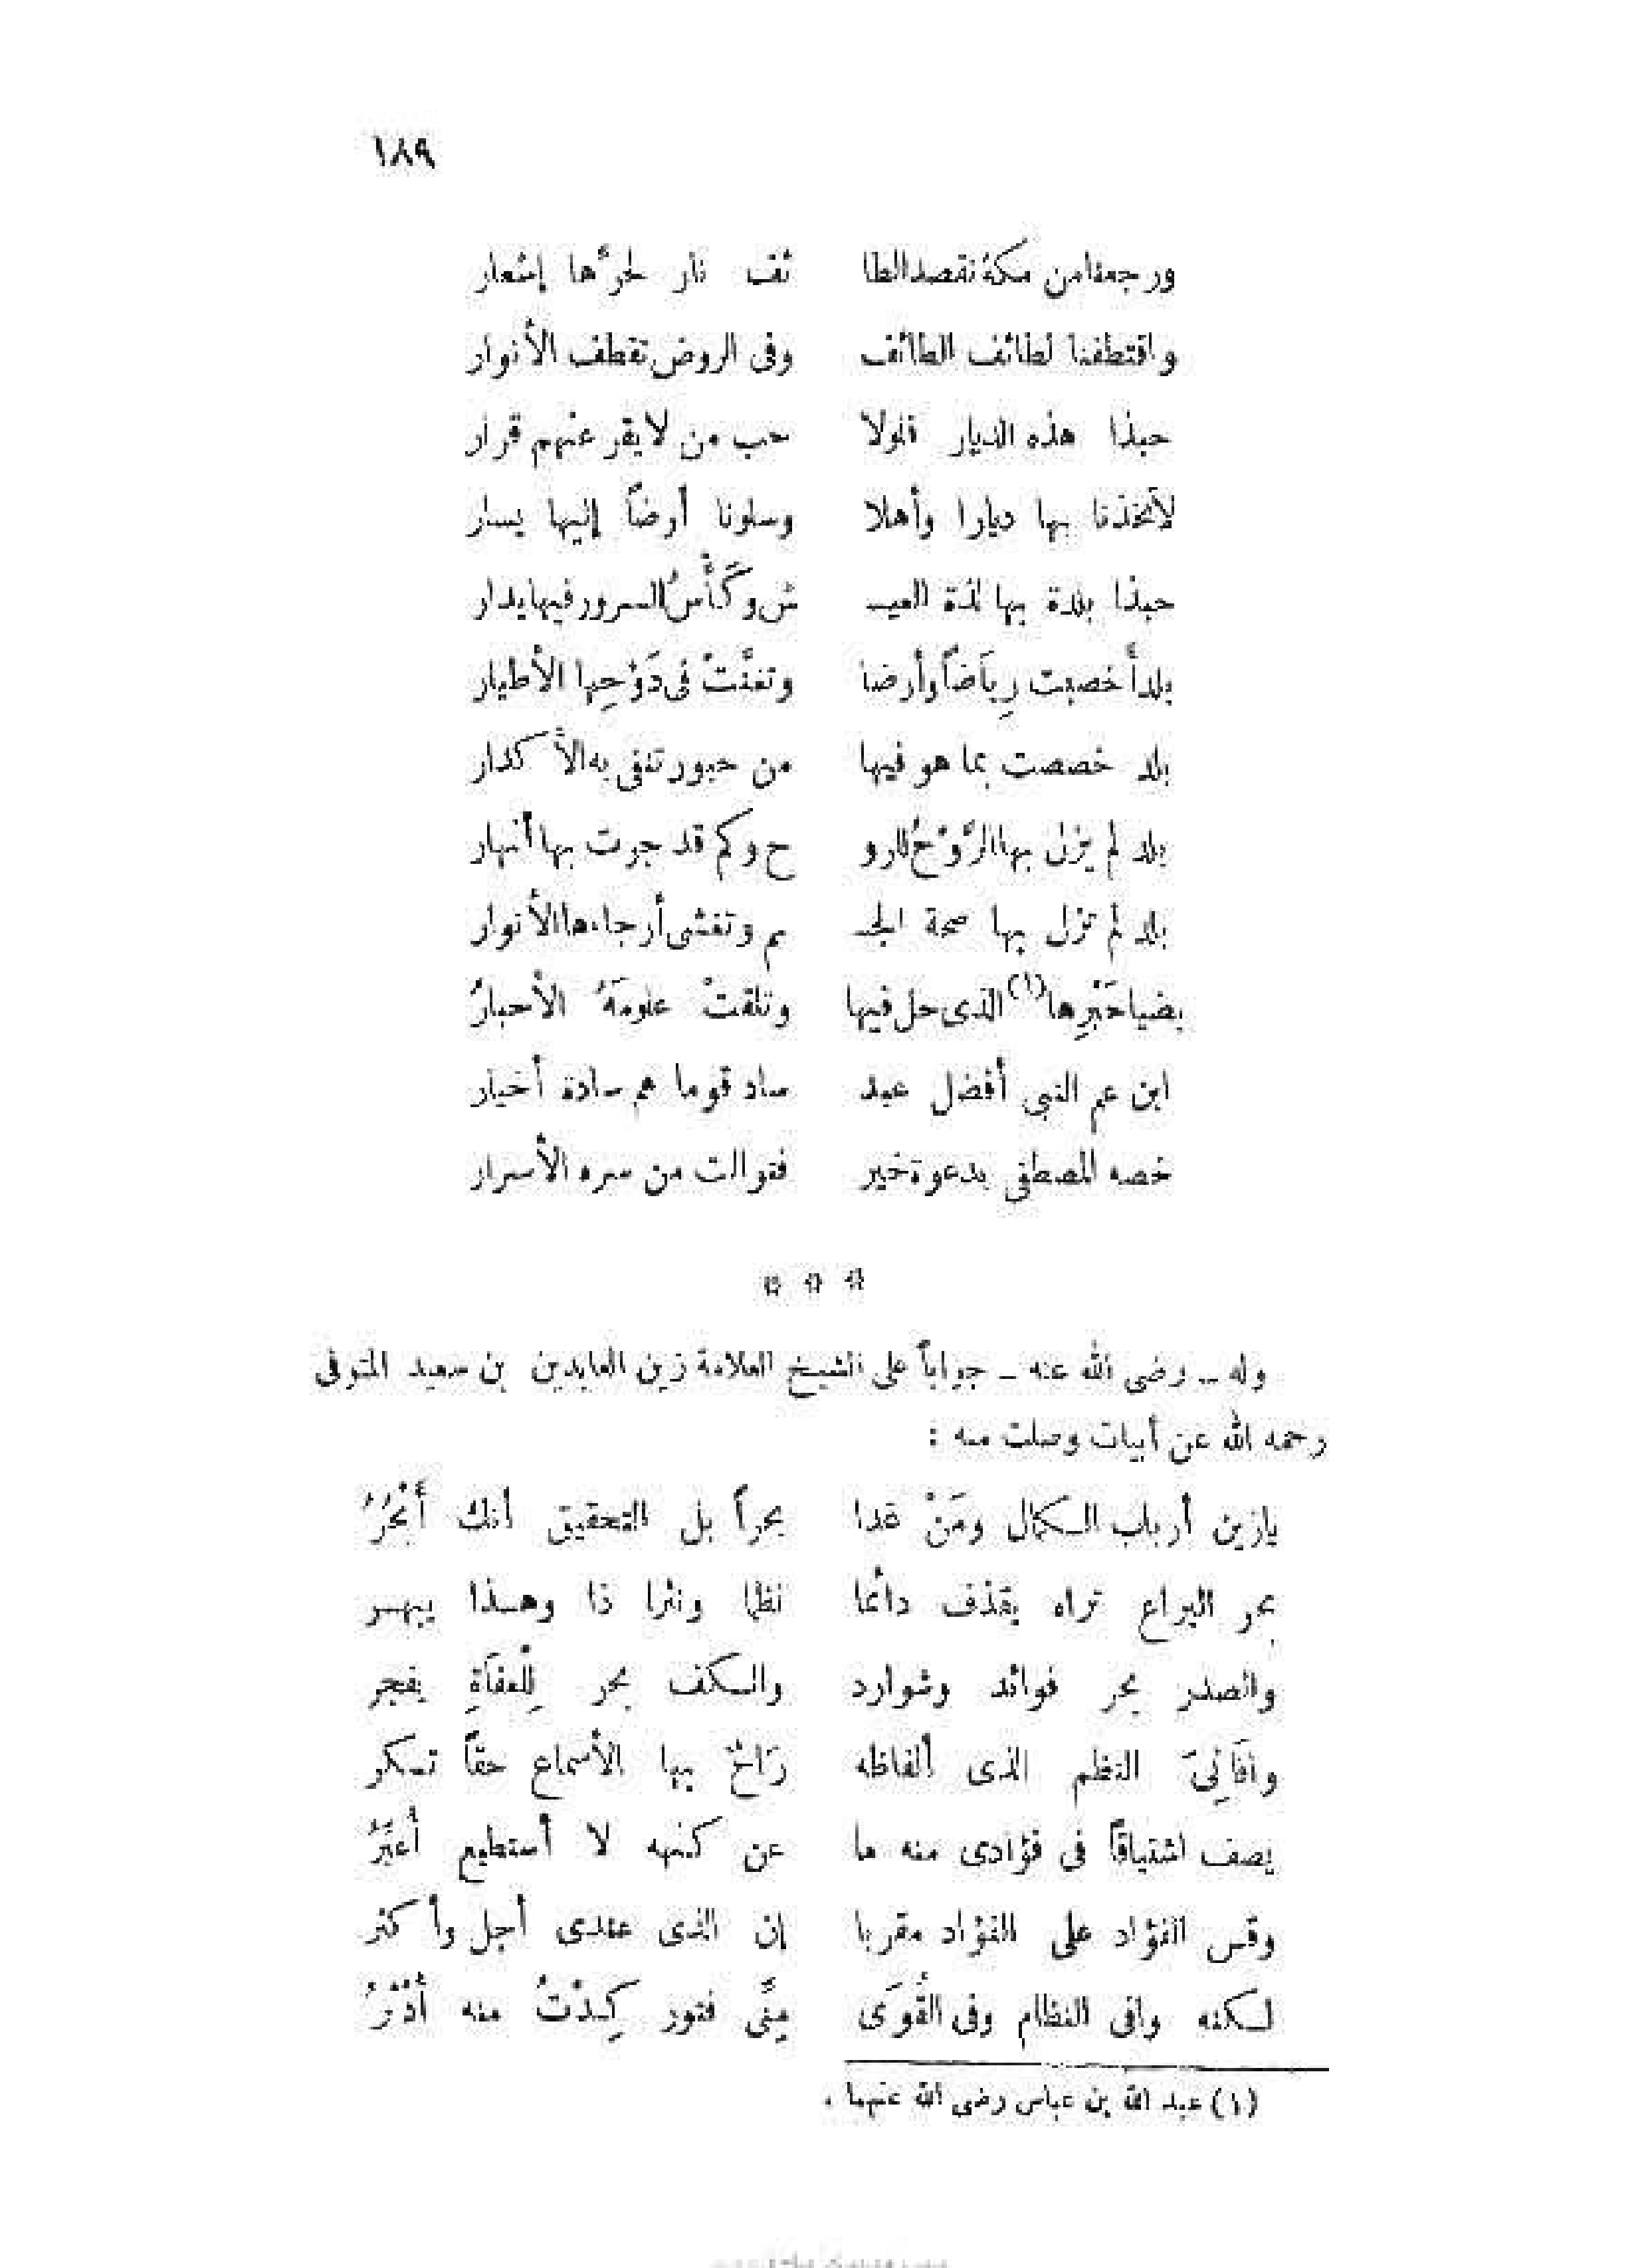 ١٨٩
ورجعنا من مكة نقصد الطا ئف نار لحرّها إشعار
واقتطفنا لطائف الطائف وفى الروض تقطف الأنوار
حبذا هذه الديار فلولا حب من لا يقر عنهم قرار
لاتخذنا بها ديارا وأهلا وسلونا أرضاً إليها يسار
حبذا بلدة بها لذة العيـ ش وكَأْسُ السرور فيها يدار
بلد أخصبت رِيَاضاً وأرضا وتغنَّتْ فى دَوْحِها الأطيار
بلد خصصت بما هو فيها من حبور تنفى به الأكدار
بلد لم يزل بها الرَّوْحُ للرو ح وكم قد جرت بها أنهار
بلد لم تزل بها صحة الجسـ م وتغشى أرجاءها الأنوار
بضيا حَبْرِها (١) الذى حل فيها وتلقتْ علومَهُ الأحبارُ
ابن عم النبى أفضل عبد ساد قوما هم سادة أخيار
خصه المصطفى بدعوة خير فتوالت من سره الأسرار
* * *
وله – رضى الله عنه – جواباً على الشيخ العلامة زين العابدين بن سعيد المتوفى
رحمه الله عن أبيات وصلت منه :
يازين أرباب الكمال ومَنْ غدا بحراً بل التحقيق أنك أَبْحُرُ
بحر اليراع تراه يقذف دائما نظما ونثرا ذا وهذا يبهر
والصدر بحر فوائد وشوارد والكف بحر لِلْعفَاةِ يفجر
وافَانِىَ النظم الذى ألفاظه رَاحٌ بها الأسماع حقاً تسكر
يصف اشتياقاً فى فؤادى منه ما عن كنهه لا أستطيع أعبِّرُ
وقس الفؤاد على الفؤاد مقربا إن الذى عندى أجل وأكثر
لكنه وافى النظام وفى القُوَى مِنِّى فتور كِدْتُ منه أَدْثُرُ
(١) عبد الله بن عباس رضى الله عنهما .